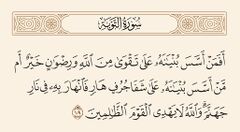 سُورَةُ التَّوْبَةِ
أَفَمَنْ أَسَّسَ بُنْيَـٰنَهُۥ عَلَىٰ تَقْوَىٰ مِنَ ٱللَّهِ وَرِضْوَٰنٍ خَيْرٌ أَم
مَّنْ أَسَّسَ بُنْيَـٰنَهُۥ عَلَىٰ شَفَا جُرُفٍ هَارٍ فَٱنْهَارَ بِهِۦ فِى نَارِ
جَهَنَّمَ ۗ وَٱللَّهُ لَا يَهْدِى ٱلْقَوْمَ ٱلظَّـٰلِمِينَ ١٠٩